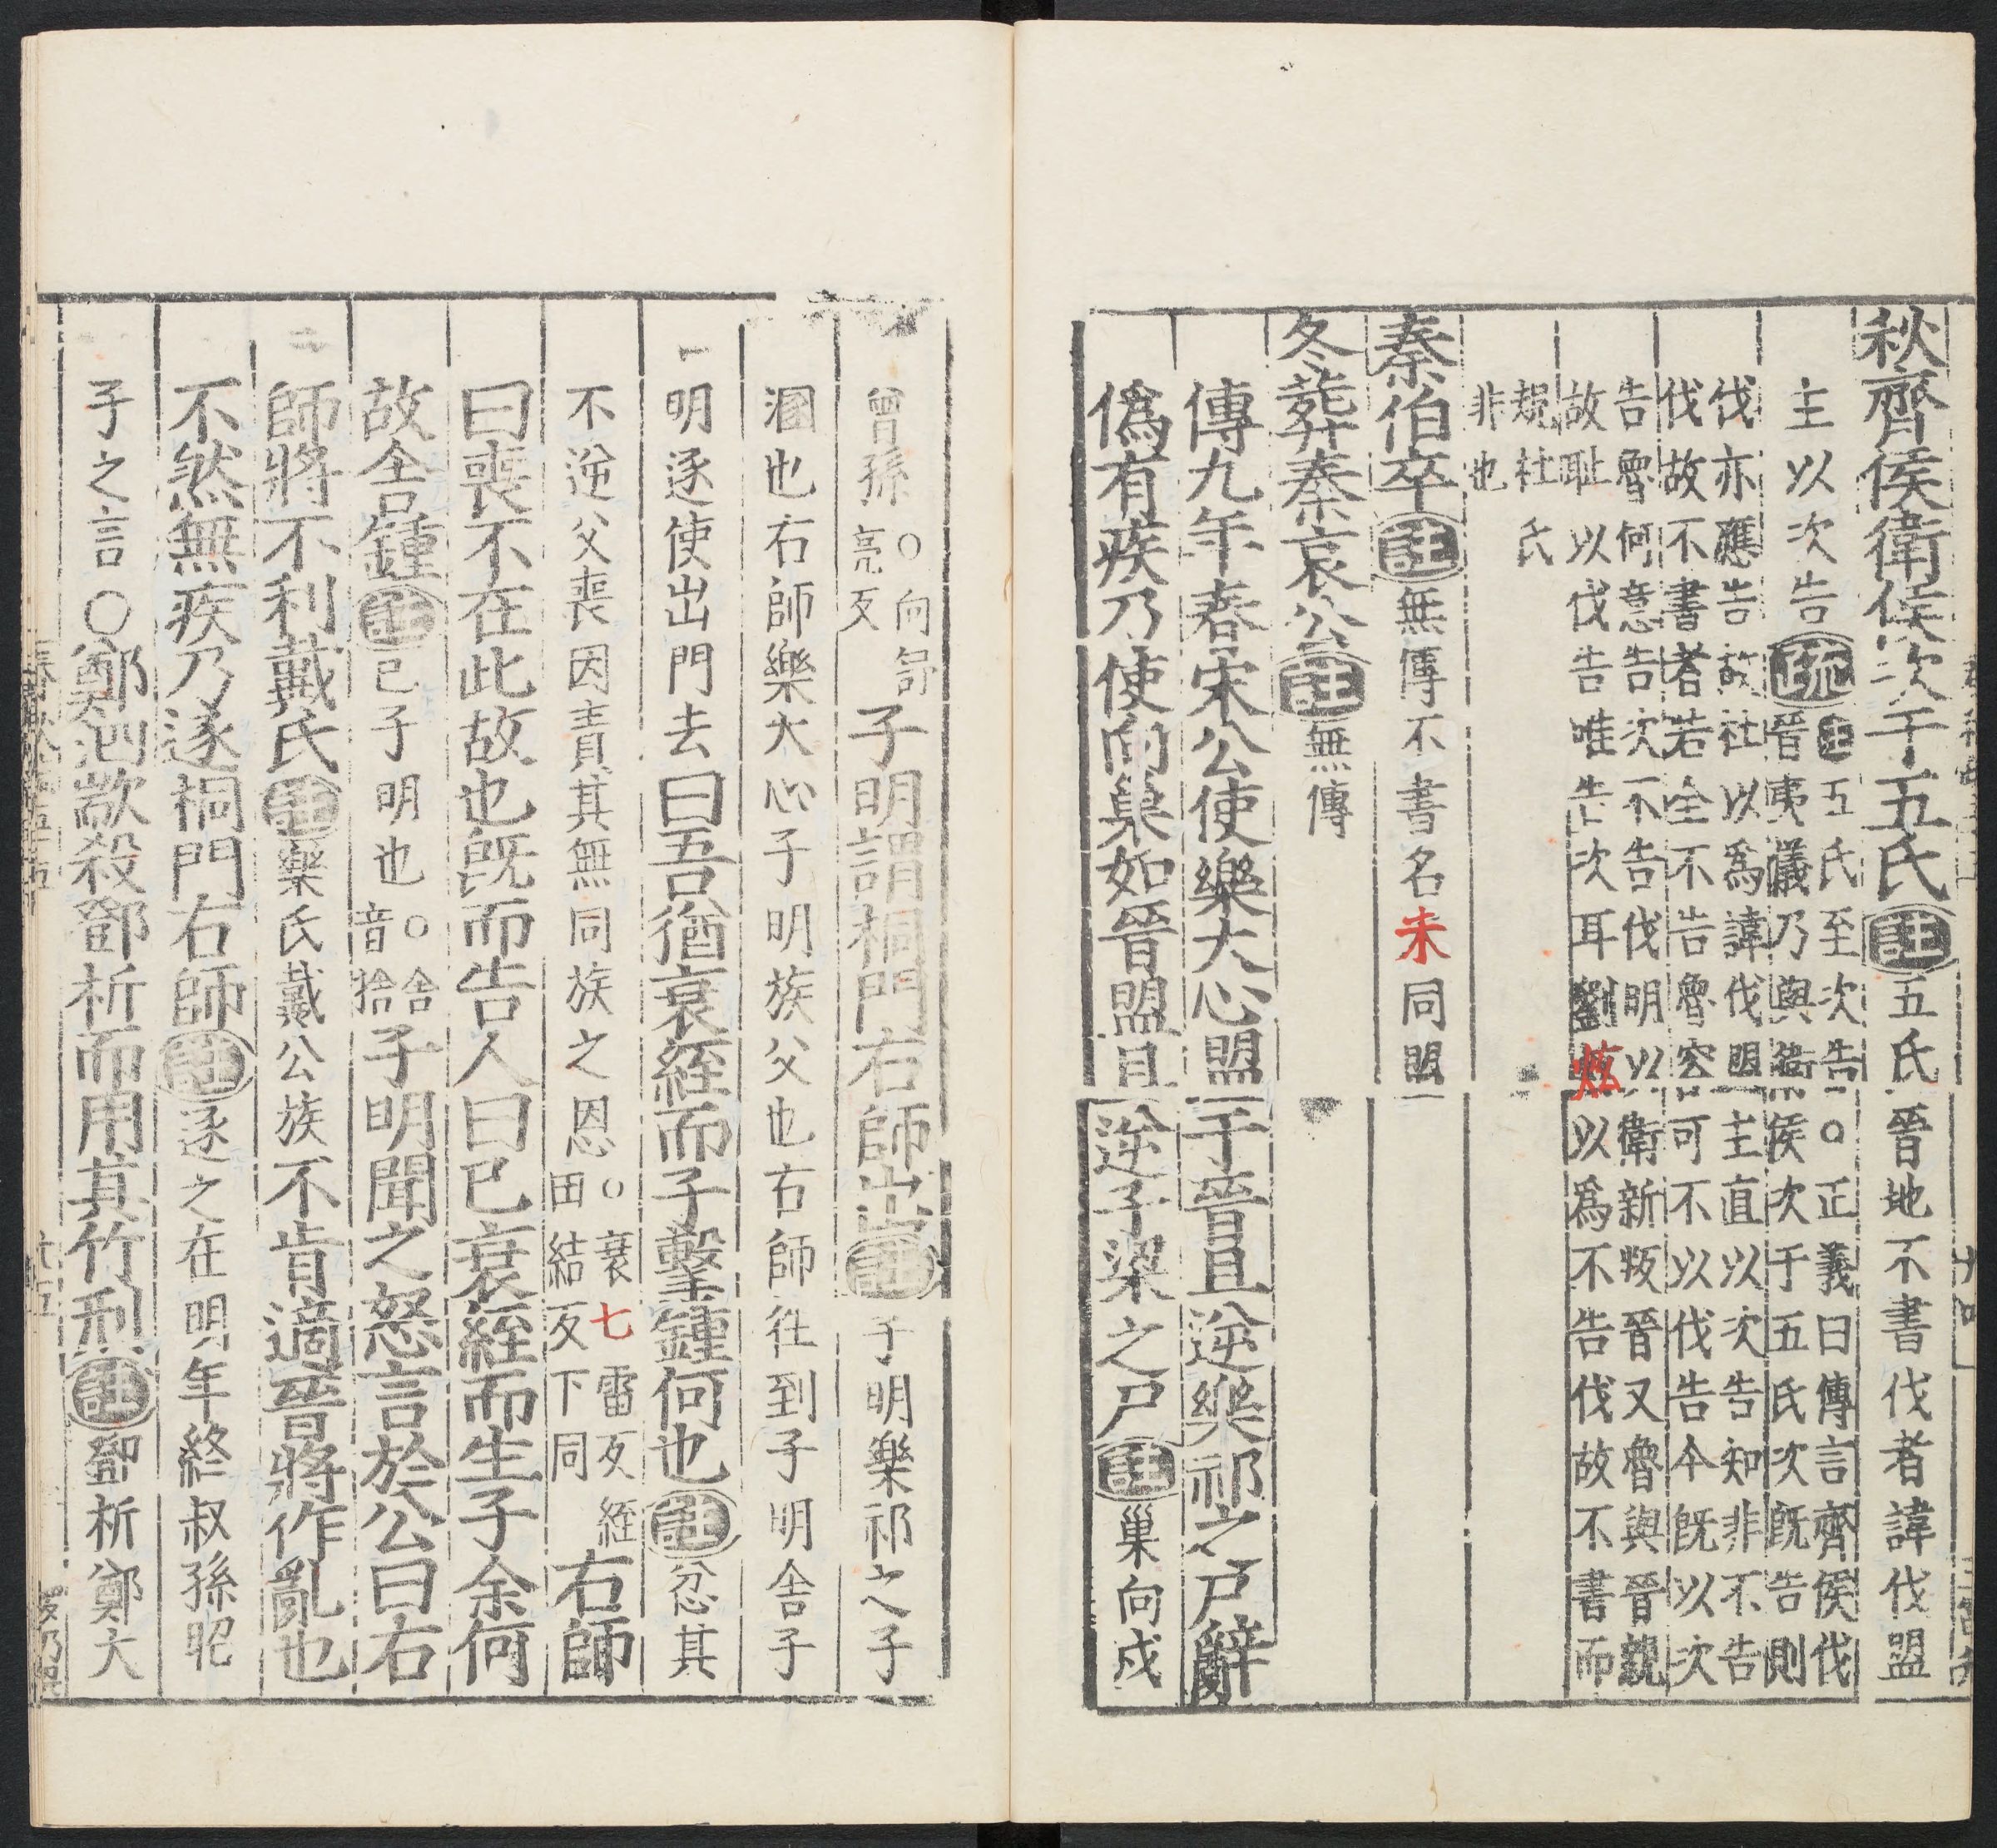 秋齊侯衛侯次于五氏註五氏晉地不書伐者諱伐盟
主以次告疏註五氏至次告○正義曰傳言齊侯伐
晉夷儀乃與衛侯次于五氏次既告則
伐亦應告故社以為諱伐盟主直以次告知非不告
伐故不書者若全不告魯容可不以伐告今既以次
告魯何意告次不告伐明以衛新叛晉又魯與晉親
故耻以伐告唯告次耳劉炫以為不告伐故不書而
規社氏
非也
秦伯卒註無傳不書名未同盟
冬葬秦哀公註無傳
傳九年春宋公使樂大心盟于晉且逆樂祁之尸辭
偽有疾乃使向巢如晉盟且逆子梁之尸註巢向戌
曾孫○向舒亮反子明謂桐門右師出註子明樂祁之子
溷也右師樂大心子明族父也右師往到子明舍子
明逐使出門去曰吾猶衰絰而子擊鍾何也註忿其
不逆父喪因責其無同族之恩○衰七雷反絰田結反下同右師
曰喪不在此故也既而告人曰已衰絰而生子余何
故舍鍾註已子明也○舍音捨子明聞之怒言於公曰右
師將不利戴氏註樂氏戴公族不肯適晉將作亂也
不然無疾乃逐桐門右師註逐之在明年終叔孫昭
子之言○鄭駟歂殺鄧析而用其竹刑註鄧析鄭大